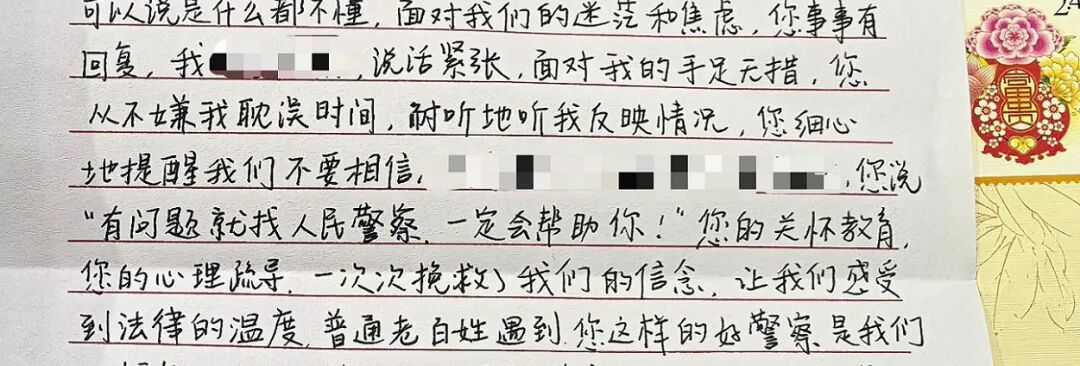 可以说是什么都不懂，面对我们的迷茫和焦虑，您事事有
回复，我，说话紧张，面对我的手足无措，您
从不嫌我耽误时间，耐听地听我反映情况，您细心
地提醒我们不要相信，您说
“有问题就找人民警察，一定会帮助你！”您的关怀教育，
您的心理疏导，一次次挽救了我们的信念，让我们感受
到法律的温度，普通老百姓遇到您这样的好警察是我们
富贵